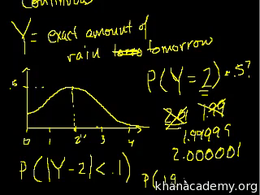 Continuous
Y = exact amount of
rain tomorrow
P(Y=2) = .5?
.5
2.01 1.99
1.99999
2.000001
0 1 2" 3 4
P(|Y-2|<.1)
P(1.9
khanacademy.org